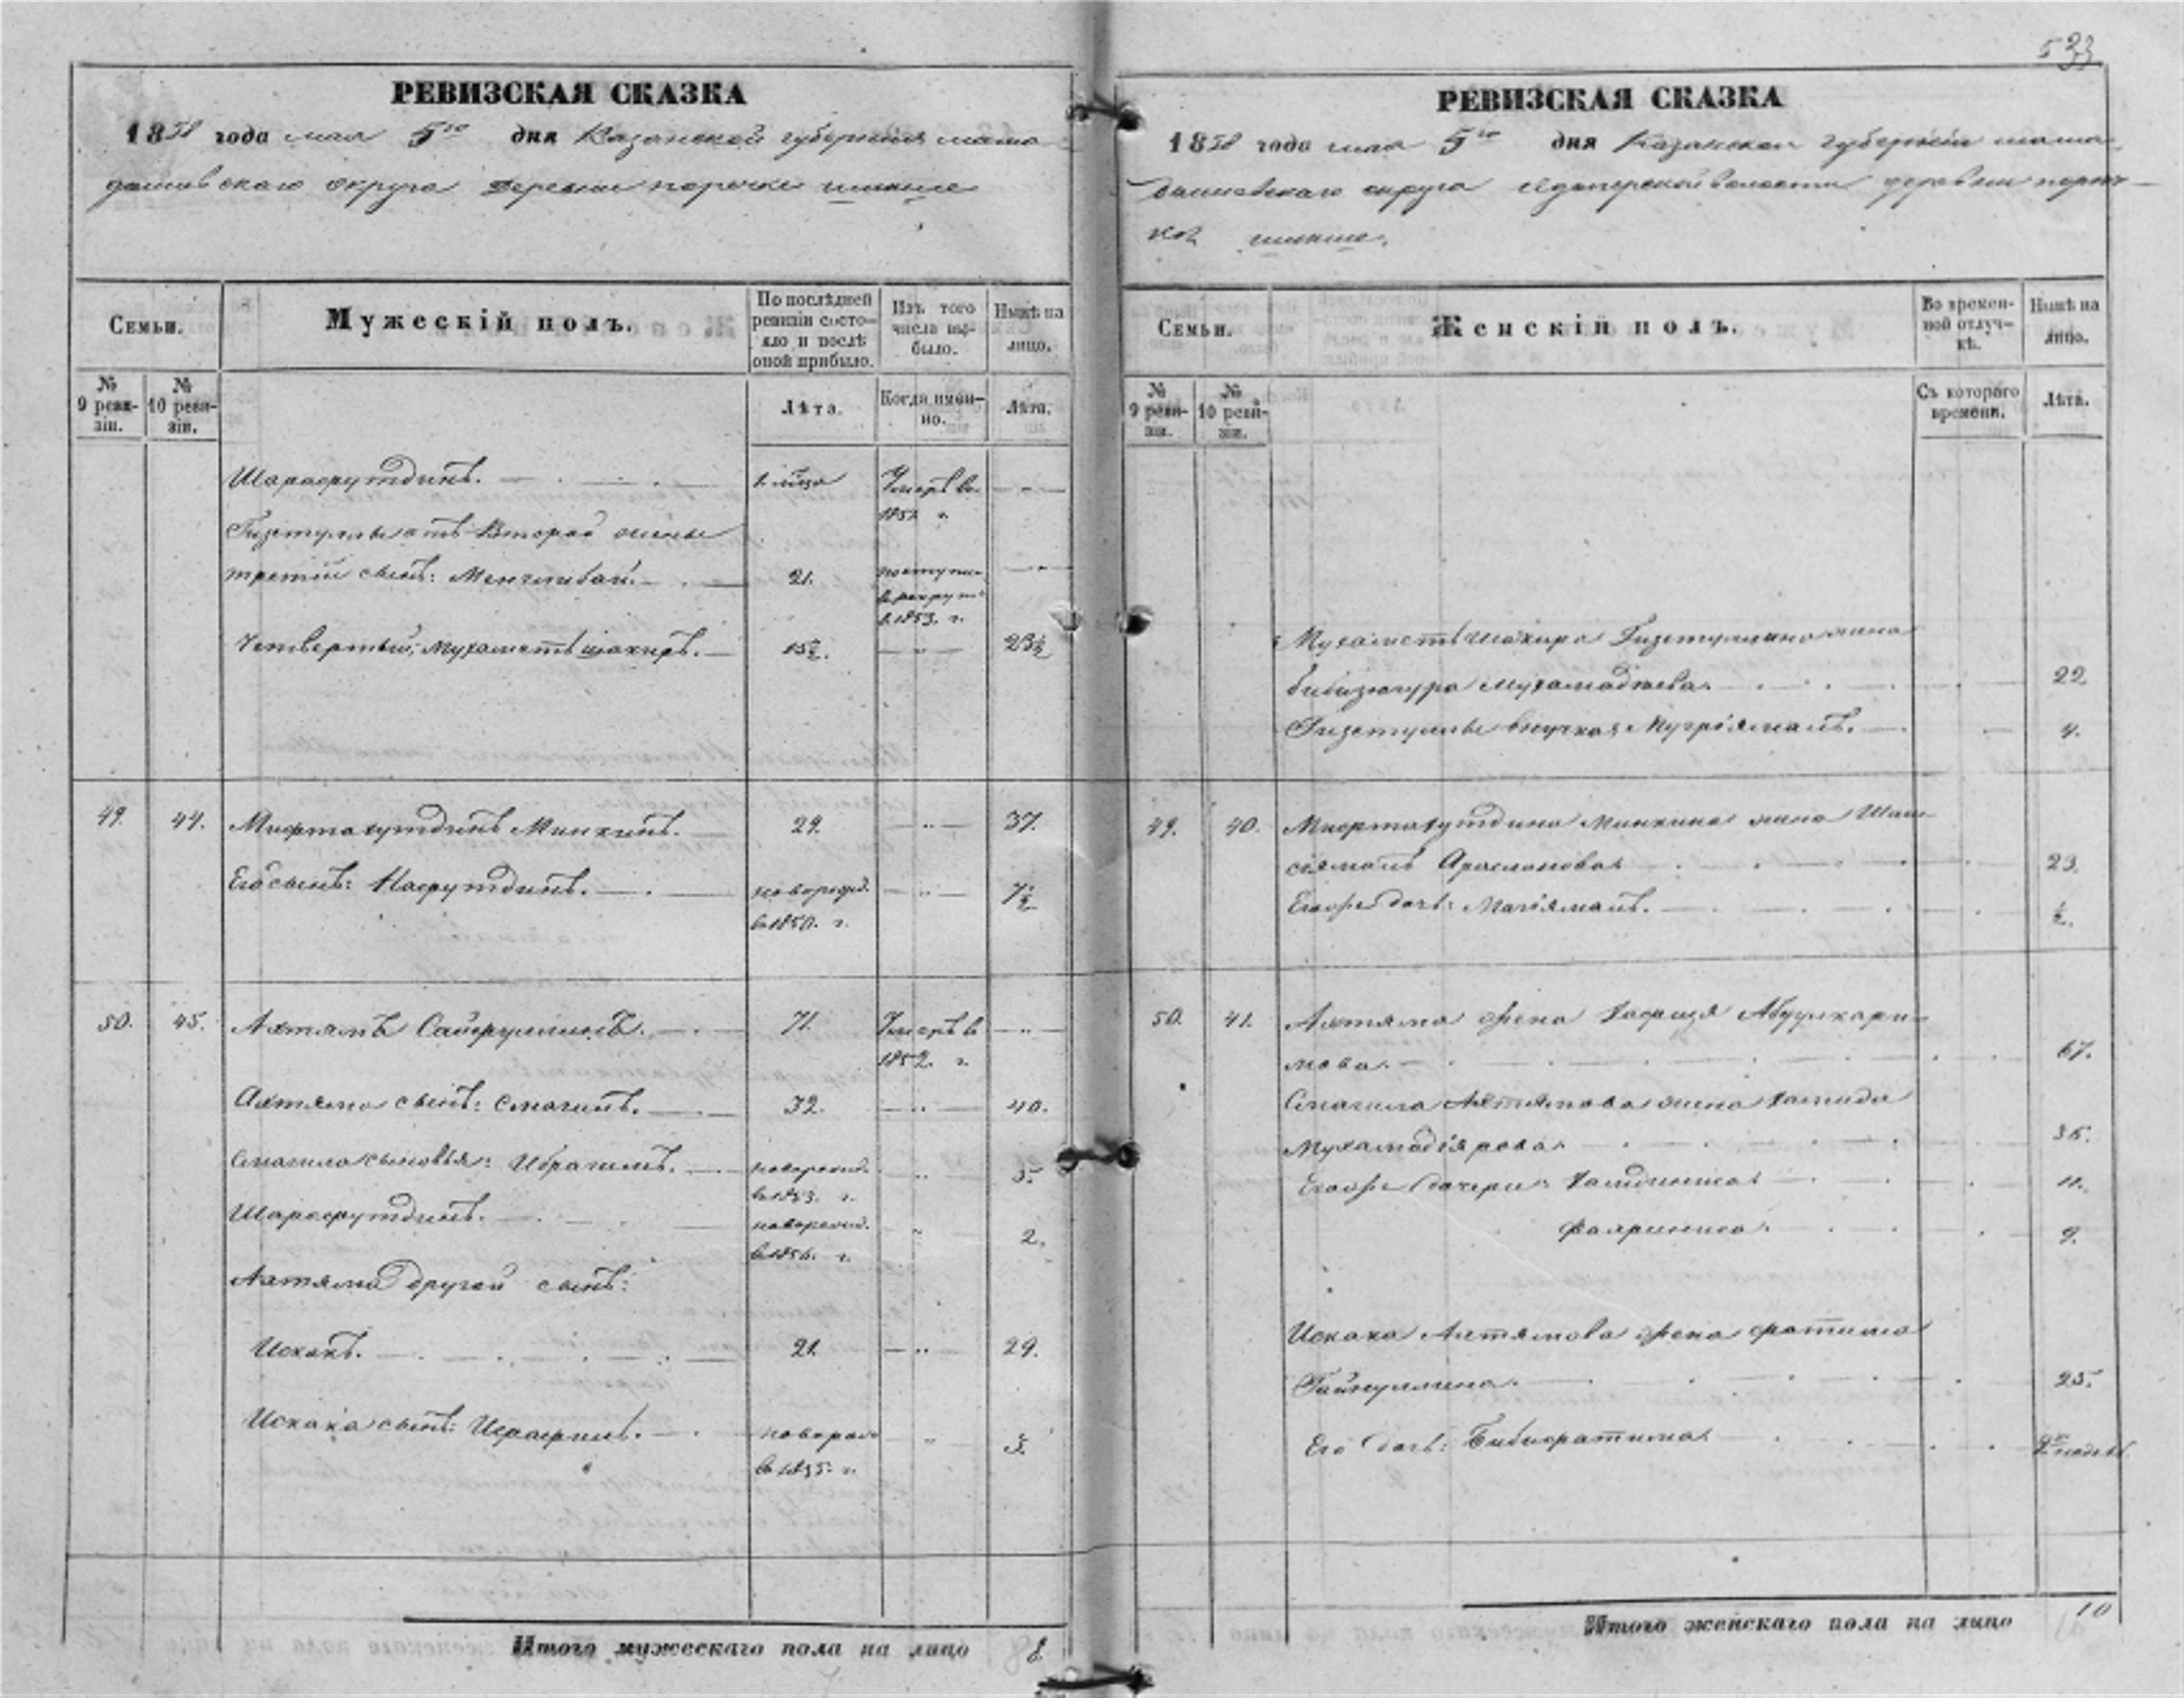 533
РЕВИЗСКАЯ СКАЗКА
1858 года мая 5го дня Казанской губернии мама
дышскаго округа деревни поречке шинше
Семьи.
Мужескій полъ.
По послѣдней ревизіи состо-
яло и послѣ
оной прибыло.
Изъ того
числа вы-
было.
Нынѣ на
лицо.
№
9 реви-
зіи.
№
10 реви-
зіи.
Лѣта.
Когда имен-
но.
Лѣта.
Шарафутдинъ. 1 Умеръ въ
185 г.
Гизетуллы отъ второй жены
третій сынъ: Менглибай. 21. поступил
в рекрут
в 1853. г.
Четвертый: Мухаметъ шакиръ. 15½. 23½
49. 44. Мифтахутдинъ Минкинъ. 29. 37.
Его сынъ: Насрутдинъ. новорожд. 7½
в 1850. г.
50. 45. Ахтямъ Сайфуллинъ. 71. Умеръ в
1852. г.
Ахтяма сынъ: Смагилъ. 32. 40.
Смагила сыновья: Ибрагимъ. новорожд. 5.
в 1853. г.
Шарафутдинъ. новорожд. 2.
в 1856. г.
Ахтяма другой сынъ:
Исхакъ. 21. 29.
Исхака сынъ: Исрафилъ. новорож 3.
в 1855. г.
Итого мужескаго пола на лицо 8
РЕВИЗСКАЯ СКАЗКА
1858 года мая 5го дня Казанской губерніи мама
дышскаго округа волости деревни пореч
ке шинше.
Семьи.
Женскій полъ.
Во времен-
ной отлуч-
кѣ.
Нынѣ на
лицо.
№
9 реви-
зіи.
№
10 реви-
зіи.
Съ котораго
времени.
Лѣта.
Мухаметъ шакира Гизетуллина жена
бибизюгура Мухамадіева. 22
Гизетуллы внучка: Мугріямалъ. 4.
49. 40. Мифтахутдина Минкина жена Шам
сіямалъ Арасланова 23.
Егоже дочь: Магіямалъ. ½.
50. 41. Ахтяма жена Хафизя Абдулкари-
мова. 67.
Смагила Ахтямова жена Хамида
Мухамадіярова. 36.
Егоже дочери: 11.
Фахриниса. 9.
Исхака Ахтямова жена Фатима
Гайнуллина. 25.
Его дочь: Бибифатима 2х недель
Итого женскаго пола на лицо 10